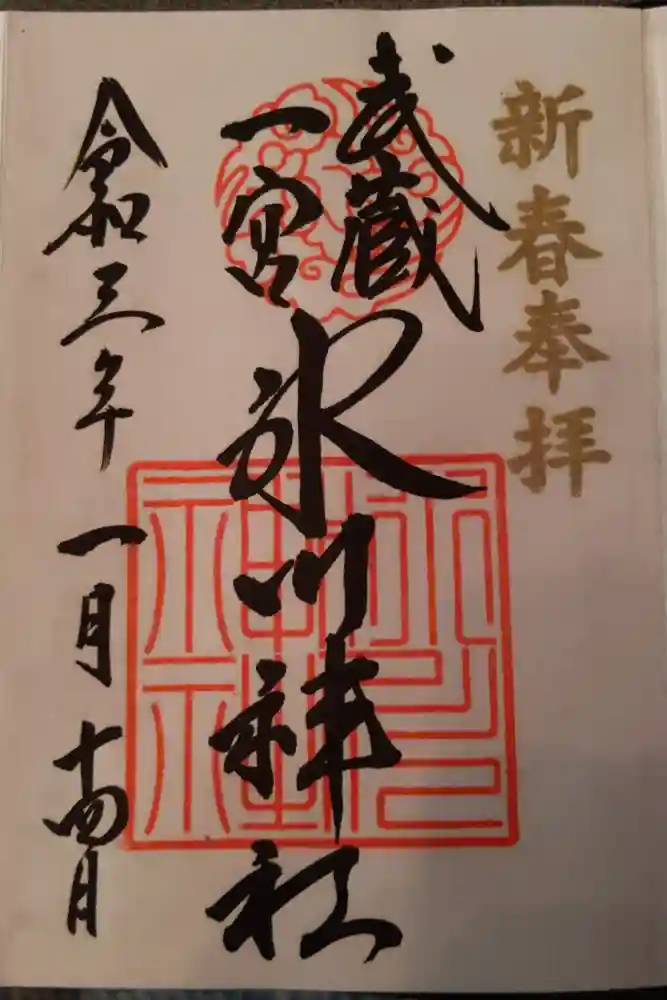 新春奉拝
武蔵
一宮
氷川神社
令和三年 一月 十四日